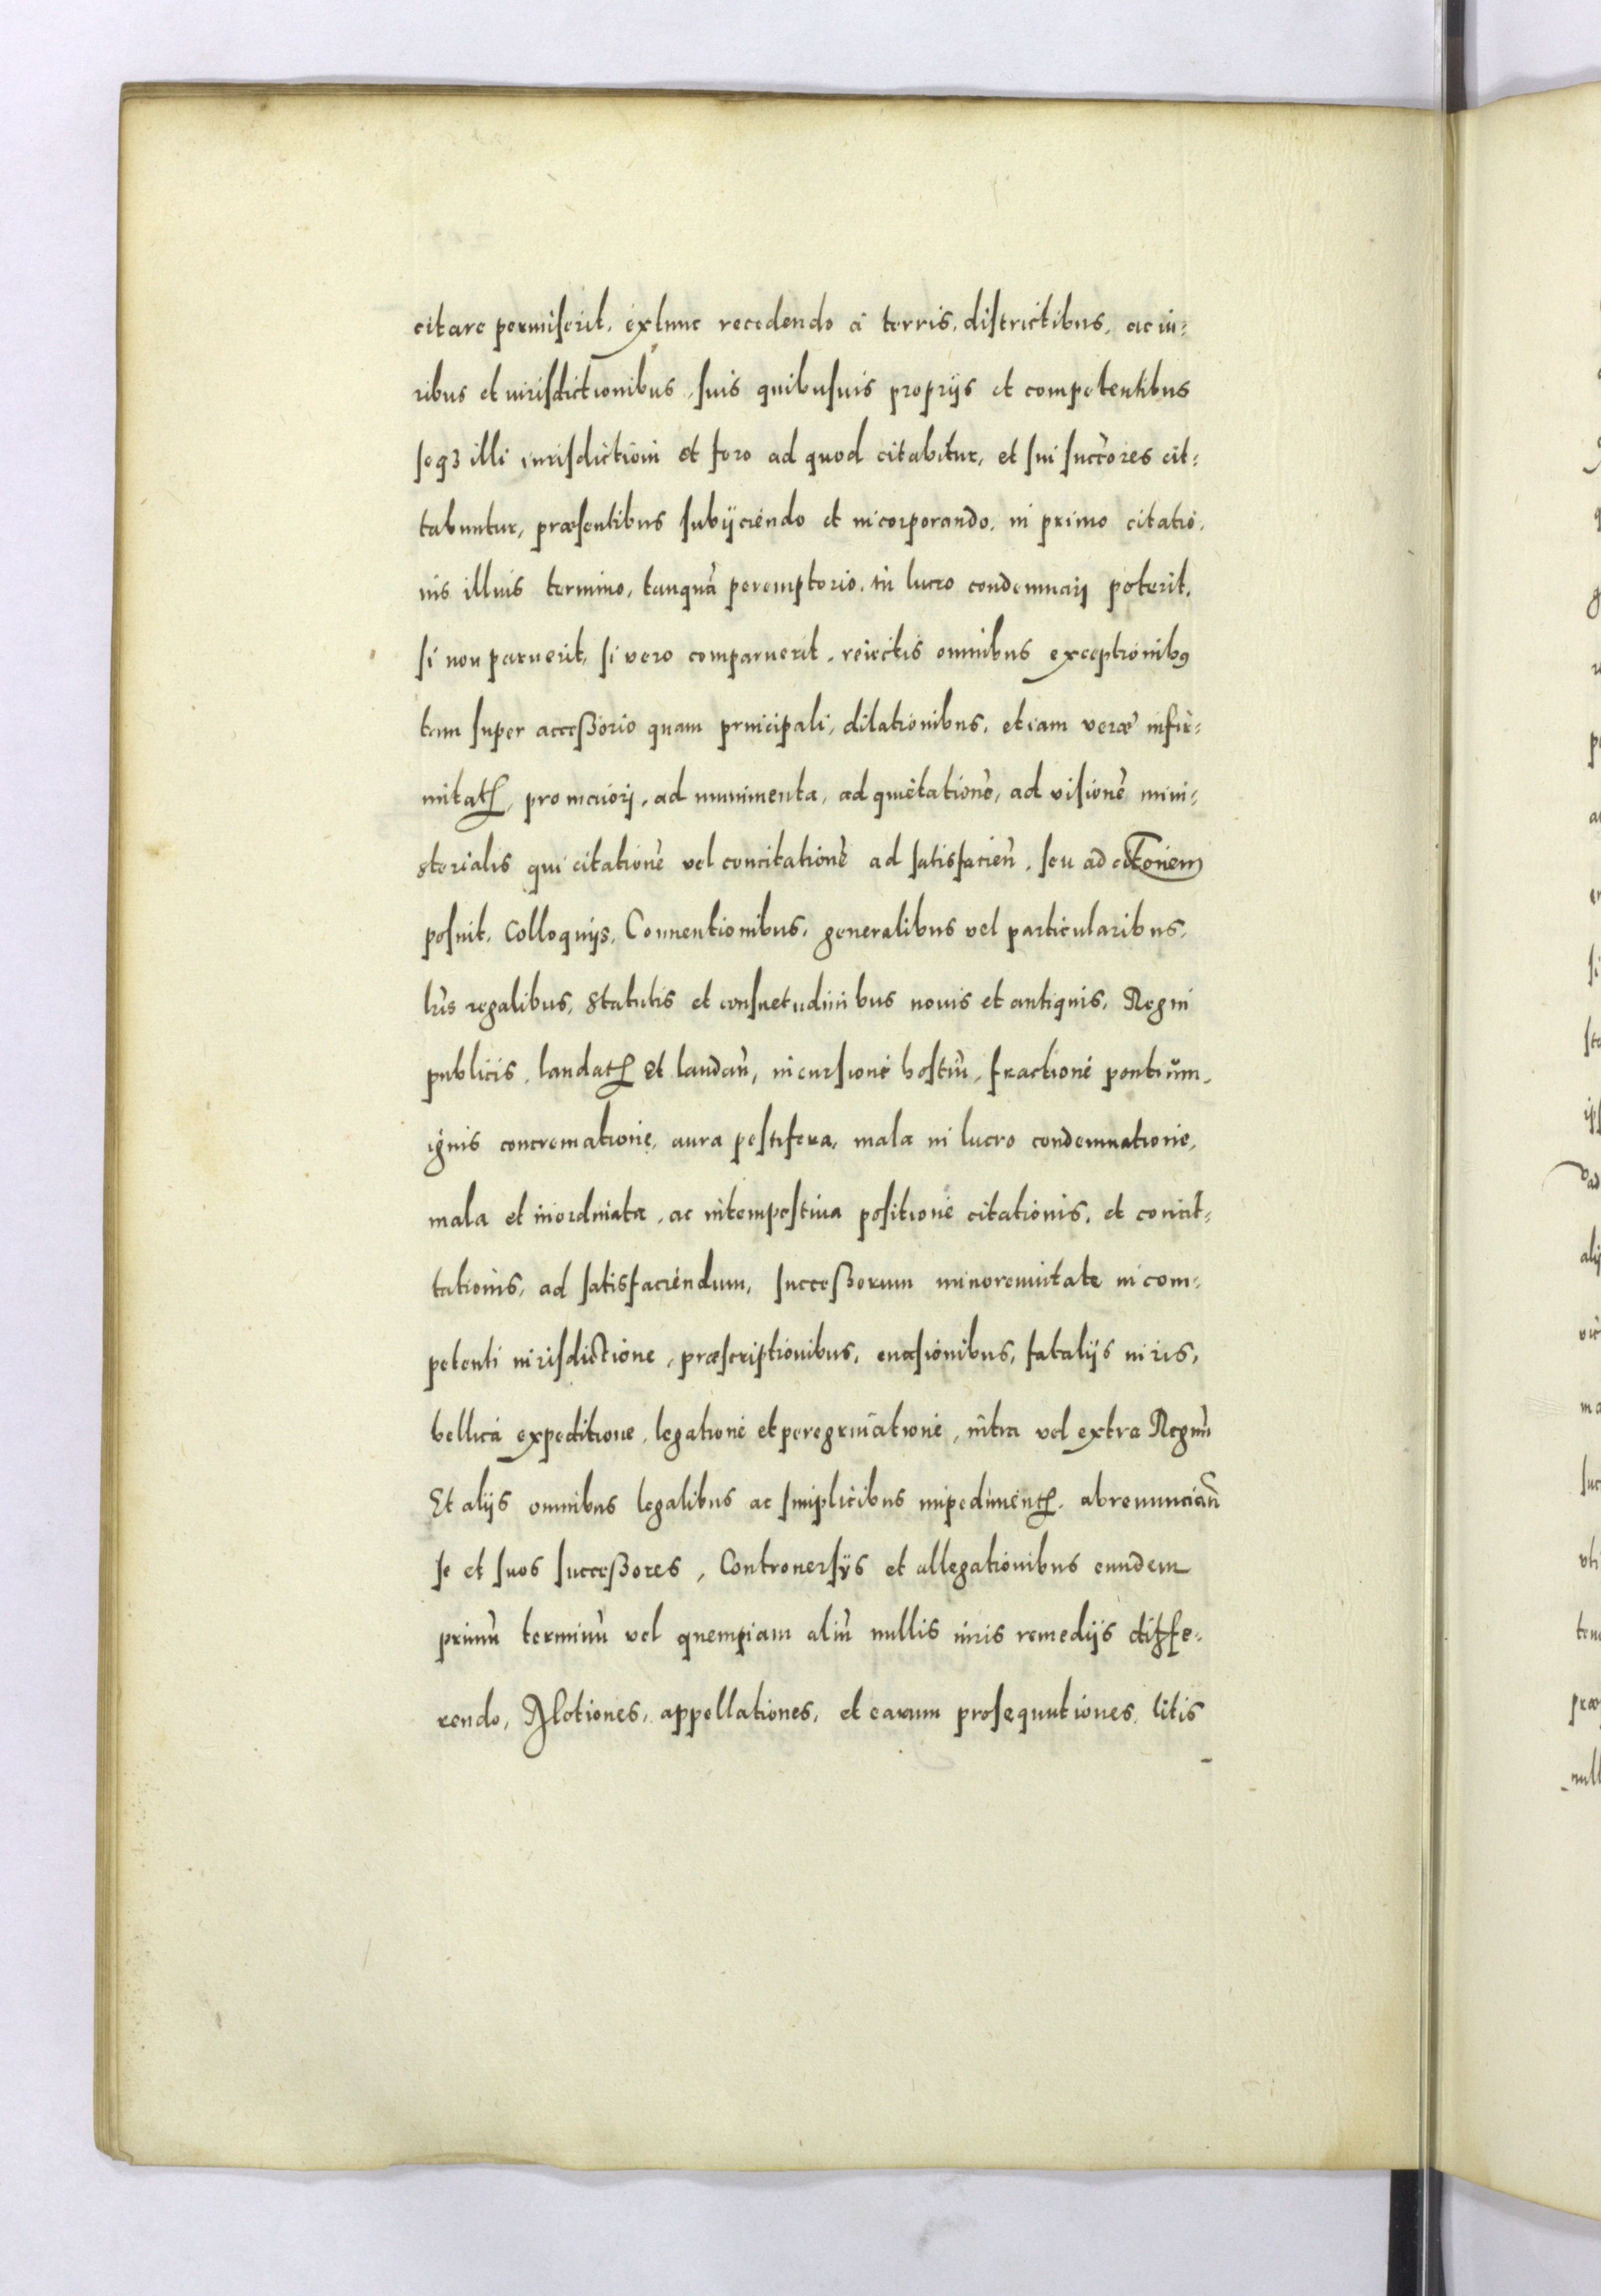 citare permiserit, extunc recedendo à terris, districtibus, ac iu⸗
ribus et iurisdictionibus, suis quibusuis proprijs et competentibus
seqꝫ illi iurisdictioni et foro ad quod citabitur, et sui succ̃ores cit⸗
tabuntur, præsentibus subijciendo et incorporando, in primo citatio⸗
nis illius termino, tanquã peremptorio, in lucro condemnari poterit,
si non paruerit, si vero comparuerit, reiectis omnibus exceptionibꝯ
tam super acceßorio quam principali, dilationibus, etiam veræ infir⸗
mitatꝭ, pro maiori, ad munimenta, ad quietationẽ, ad visionẽ mini⸗
sterialis qui citationẽ vel concitationẽ ad satisfacieñ, seu ad citoriem
posuit, Colloquijs, Conuentionibus, generalibus vel particularibus,
lr̃is regalibus, statutis et consuetudinibus nouis et antiquis, Regni
publicis, laudatꝭ et laudañ, incursione hostiũ, fractione pontium,
ignis concrematione, aura pestifera, mala in lucro condemnatione,
mala et inordinata, ac intempestiua positione citationis, et concit⸗
tationis, ad satisfaciendum, succeßorum minorennitate incom⸗
petenti iurisdictione, præscriptionibus, euasionibus, fatalijs iuris,
bellica expeditione, legatione et peregrinatione, intra vel extra Regnũ
Et alijs omnibus legalibus ac simplicibus impedimentꝭ, abrenunciañ
se et suos succeßores, Controuersijs et allegationibus eundem
primũ terminũ vel quempiam aliũ nullis iuris remedijs diffe⸗
rendo, Motiones, appellationes, et earum prosequutiones, litis